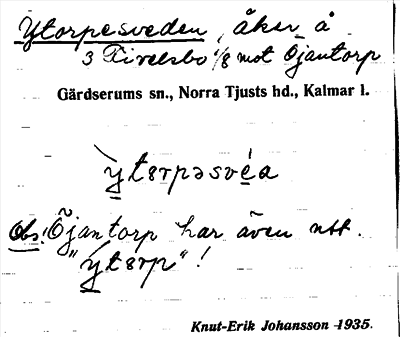 Ytorpesveden, åker å
3 Rivelsbo 1/8 mot Öjantorp
Gärdserums sn., Norra Tjusts hd., Kalmar l.
ỳtɛrpəsvéa
Obs! Öjantorp har även utt.
"ýtɛrp"!
Knut-Erik Johansson 1935.